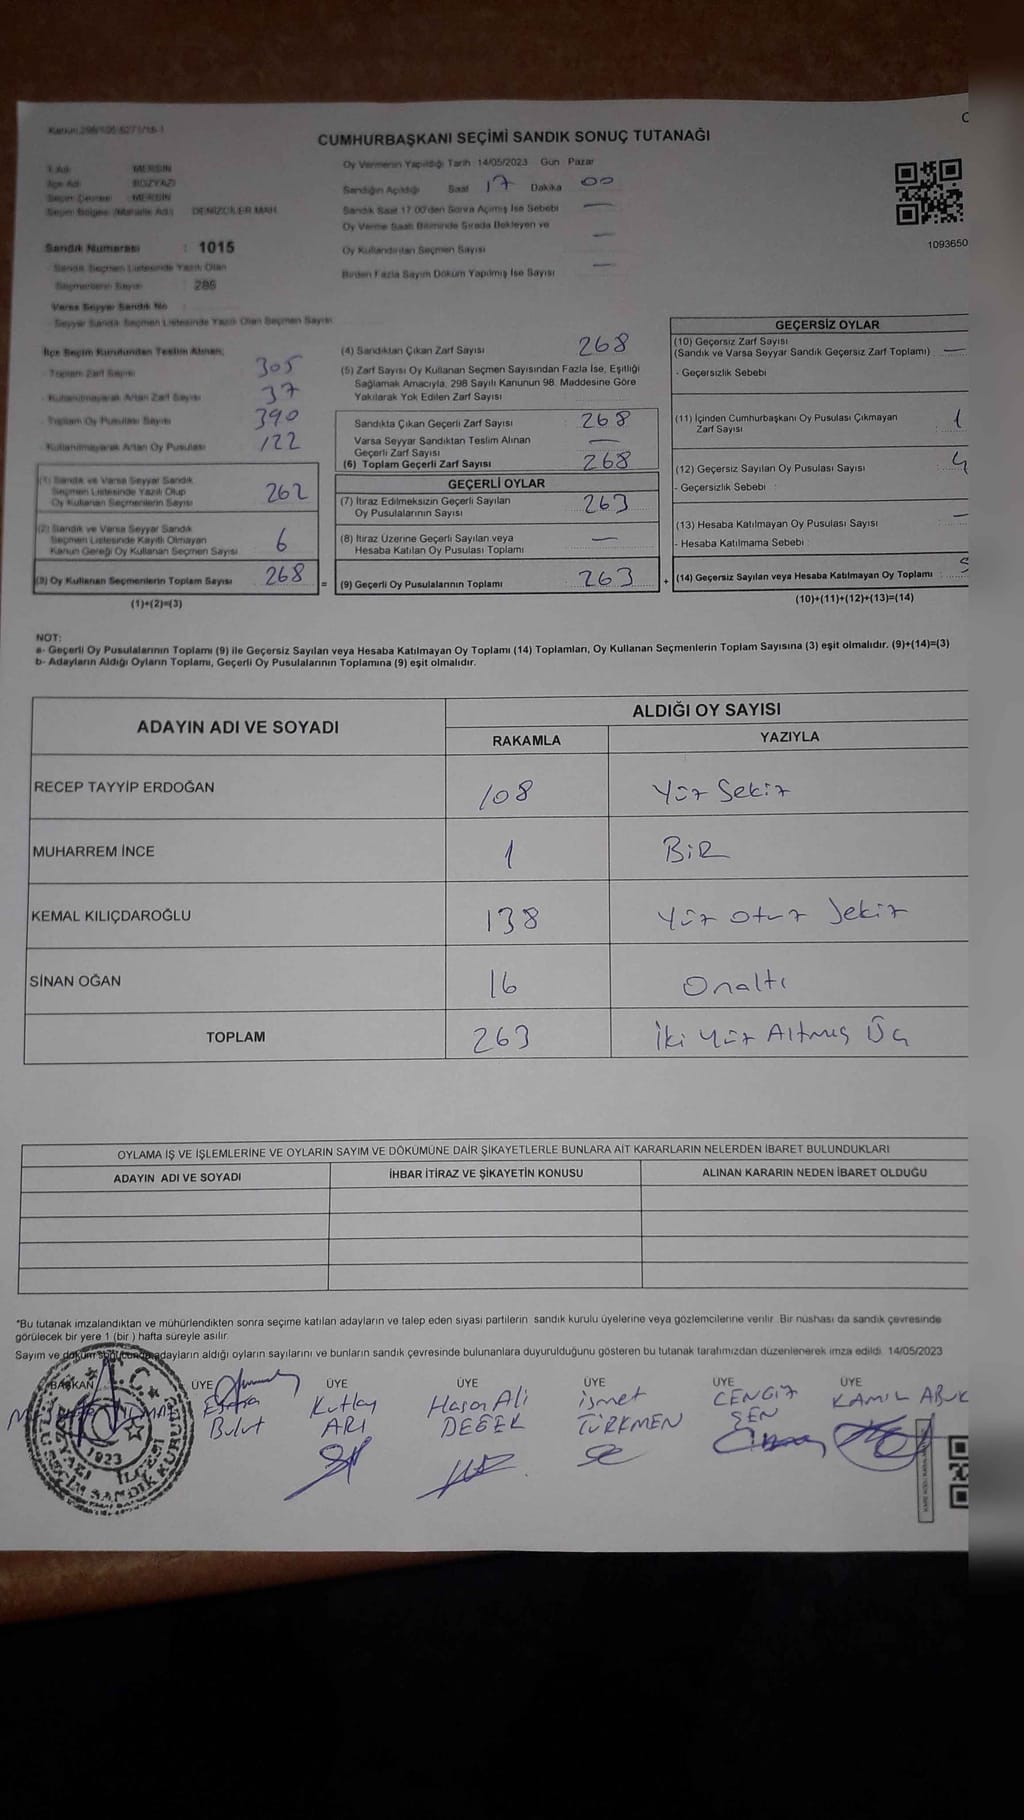 CUMHURBAŞKANI SEÇİMİ SANDIK SONUÇ TUTANAĞI
Oy Vermenin Yapıldığı Tarih 14/05/2023 Gün Pazar
MERSİN
Sandığın Açıldığı Saat 17 Dakika 00
BOZYAZI
MERSİN
DENİZCİLER MAH.
Sandık Saat 17:00'den Sonra Açılmış İse Sebebi —
Oy Verme Saati Bitiminde Sırada Bekleyen ve
Oy Kullandırılan Seçmen Sayısı —
Birden Fazla Sayım Döküm Yapılmış İse Sayısı —
1093650
Sandık Numarası : 1015
Sandık Seçmen Listesinde Yazılı Olan
Seçmenlerin Sayısı
Varsa Seyyar Sandık No
Seyyar Sandık Seçmen Listesinde Yazılı Olan Seçmen Sayısı
İlçe Seçim Kurulundan Teslim Alınan;
- Toplam Zarf Sayısı 305
- Kullanılmayarak Artan Zarf Sayısı 37
- Toplam Oy Pusulası Sayısı 390
- Kullanılmayarak Artan Oy Pusulası 122
(1) Sandık ve Varsa Seyyar Sandık
Seçmen Listesinde Yazılı Olup
Oy Kullanan Seçmenlerin Sayısı 262
(2) Sandık ve Varsa Seyyar Sandık
Seçmen Listesinde Kayıtlı Olmayan
Kanun Gereği Oy Kullanan Seçmen Sayısı 6
(3) Oy Kullanan Seçmenlerin Toplam Sayısı 268 =
(1)+(2)=(3)
(4) Sandıktan Çıkan Zarf Sayısı 268
(5) Zarf Sayısı Oy Kullanan Seçmen Sayısından Fazla İse, Eşitliği
Sağlamak Amacıyla, 298 Sayılı Kanunun 98. Maddesine Göre
Yakılarak Yok Edilen Zarf Sayısı
Sandıkta Çıkan Geçerli Zarf Sayısı 268
Varsa Seyyar Sandıktan Teslim Alınan
Geçerli Zarf Sayısı —
(6) Toplam Geçerli Zarf Sayısı 268
GEÇERLİ OYLAR
(7) İtiraz Edilmeksizin Geçerli Sayılan
Oy Pusulalarının Sayısı 263
(8) İtiraz Üzerine Geçerli Sayılan veya
Hesaba Katılan Oy Pusulası Toplamı —
(9) Geçerli Oy Pusulalarının Toplamı 263 +
GEÇERSİZ OYLAR
(10) Geçersiz Zarf Sayısı
(Sandık ve Varsa Seyyar Sandık Geçersiz Zarf Toplamı) —
- Geçersizlik Sebebi
(11) İçinden Cumhurbaşkanı Oy Pusulası Çıkmayan
Zarf Sayısı 1
(12) Geçersiz Sayılan Oy Pusulası Sayısı 4
- Geçersizlik Sebebi :
(13) Hesaba Katılmayan Oy Pusulası Sayısı —
- Hesaba Katılmama Sebebi :
(14) Geçersiz Sayılan veya Hesaba Katılmayan Oy Toplamı 5
(10)+(11)+(12)+(13)=(14)
NOT:
a- Geçerli Oy Pusulalarının Toplamı (9) ile Geçersiz Sayılan veya Hesaba Katılmayan Oy Toplamı (14) Toplamları, Oy Kullanan Seçmenlerin Toplam Sayısına (3) eşit olmalıdır. (9)+(14)=(3)
b- Adayların Aldığı Oyların Toplamı, Geçerli Oy Pusulalarının Toplamına (9) eşit olmalıdır.
ADAYIN ADI VE SOYADI
ALDIĞI OY SAYISI
RAKAMLA YAZIYLA
RECEP TAYYİP ERDOĞAN 108 Yüz Sekiz
MUHARREM İNCE 1 BİR
KEMAL KILIÇDAROĞLU 138 Yüz Otuz Sekiz
SİNAN OĞAN 16 Onaltı
TOPLAM 263 İki Yüz Altmış Üç
OYLAMA İŞ VE İŞLEMLERİNE VE OYLARIN SAYIM VE DÖKÜMÜNE DAİR ŞİKAYETLERLE BUNLARA AİT KARARLARIN NELERDEN İBARET BULUNDUKLARI
ADAYIN ADI VE SOYADI İHBAR İTİRAZ VE ŞİKAYETİN KONUSU ALINAN KARARIN NEDEN İBARET OLDUĞU
*Bu tutanak imzalandıktan ve mühürlendikten sonra seçime katılan adayların ve talep eden siyasi partilerin sandık kurulu üyelerine veya gözlemcilerine verilir. Bir nüshası da sandık çevresinde
görülecek bir yere 1 (bir ) hafta süreyle asılır.
Sayım ve döküm sonucunda adayların aldığı oyların sayılarını ve bunların sandık çevresinde bulunanlara duyurulduğunu gösteren bu tutanak tarafımızdan düzenlenerek imza edildi. 14/05/2023
BAŞKAN ÜYE ÜYE ÜYE ÜYE ÜYE ÜYE
Bulut
Kutlay ARI
Hasan Ali
İsmet TÜRKMEN
CENGİZ ŞEN
KAMİL ABUK
T.C.
1923